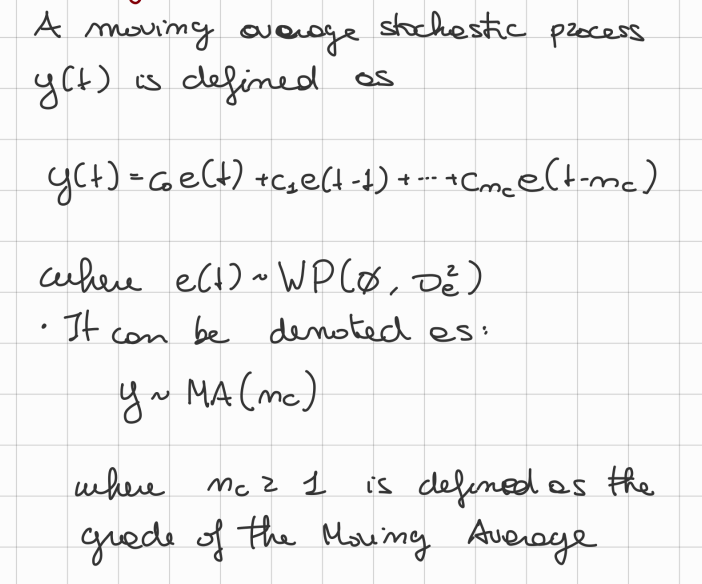 A moving average stochastic process
y(t) is defined as
y(t) = c₀e(t) + c₁e(t-1) + ... + c_{nc}e(t-nc)
where e(t) ~ WP(∅, σₑ²)
· It can be denoted as:
y ~ MA(nc)
where nc ≥ 1 is defined as the
grade of the Moving Average